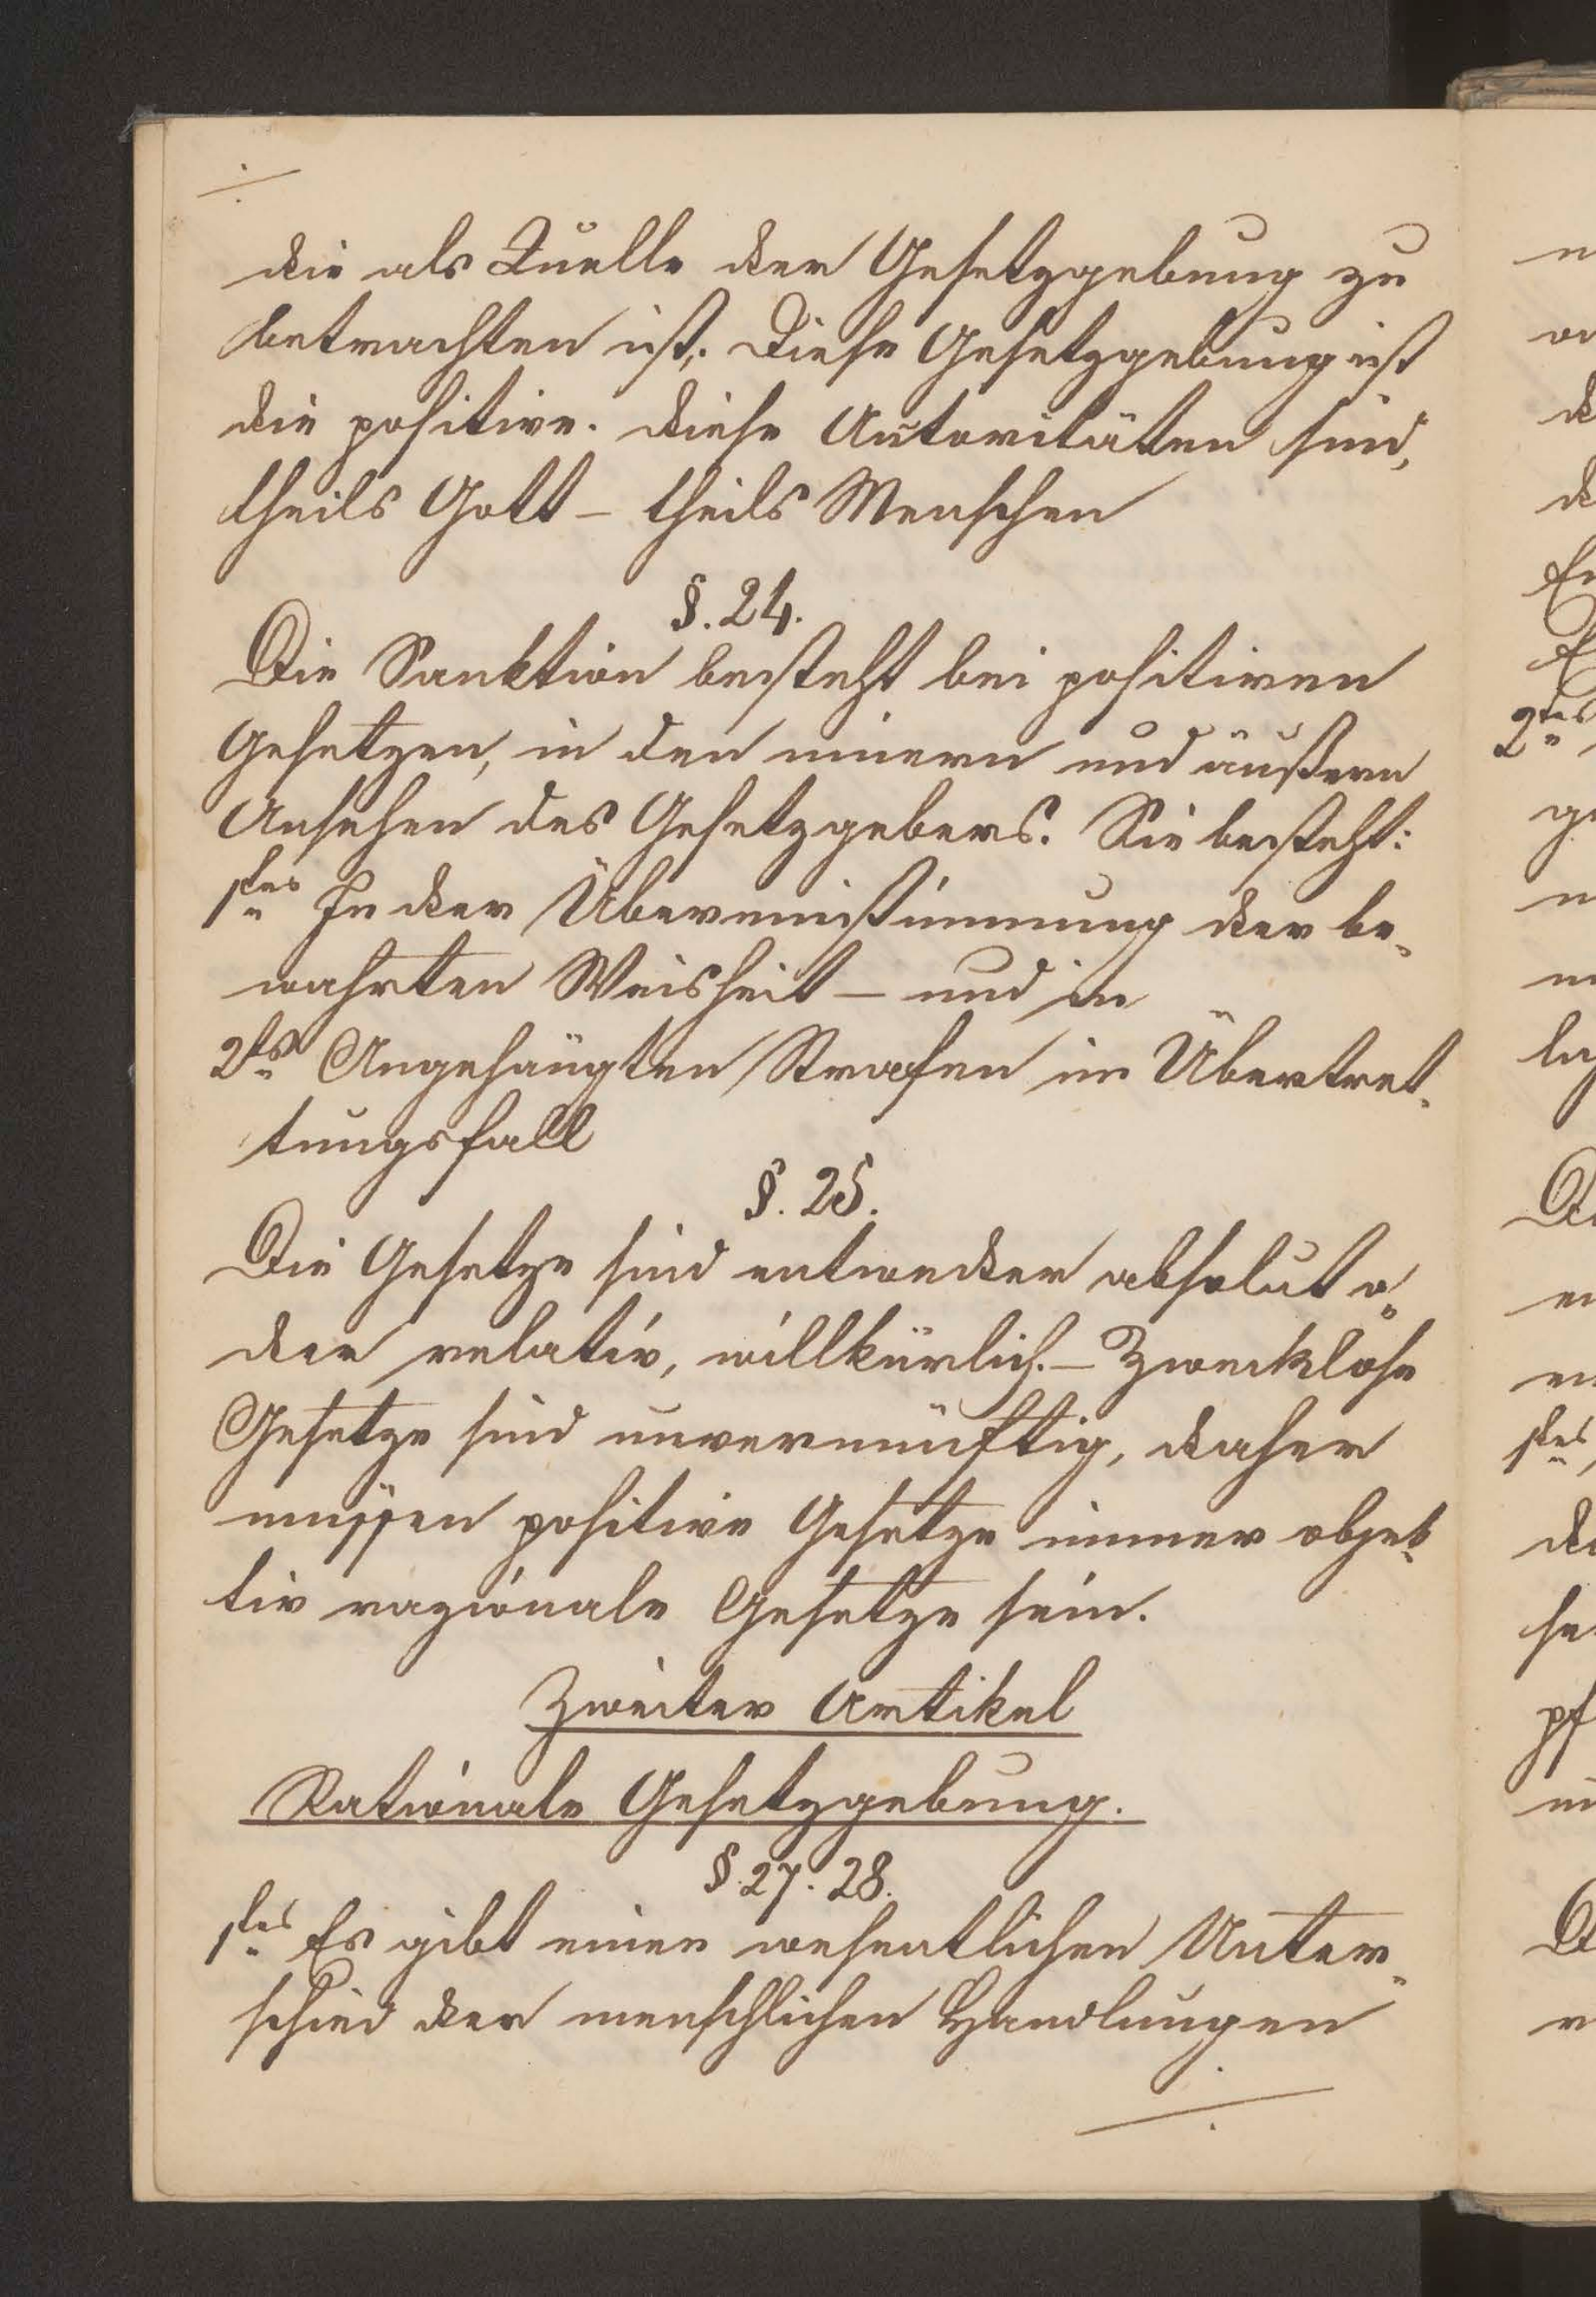 die als Quelle der Gesetzgebung zu
betrachten ist. Diese Gesetzgebung ist
die positive. Diese Autoritäten sind,
theils Gott – theils Menschen
§. 24.
Die Sanktion besteht bei positiven
Gesetzen, in den innern und äußern
Ansehen des Gesetzgebers. Sie besteht:
1tens In der Übereinstimmung der be-
wahrten Weisheit – und in
2ts Angehängten Strafen im Übertret-
tungsfall
§. 25.
Die Gesetze sind entweder absolut o-
der relativ, willkürlich. – Zwecklose
Gesetze sind unvernünftig, daher
mussen positive Gesetze immer objek-
tiv razionale Gesetze sein.
Zweiter Artikel
Rationale Gesetzgebung.
§. 27. 28.
1tens Es gibt einen wesentlichen Unter-
schied der menschlichen Handlungen